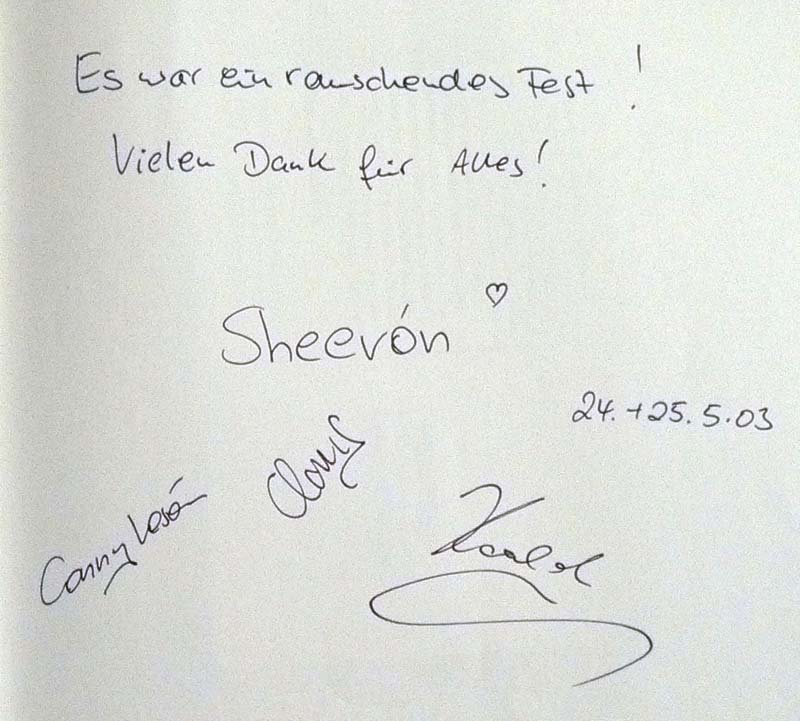 Es war ein rauschendes Fest!
Vielen Dank für Alles!
Sheevón ♡
24.+25.5.03